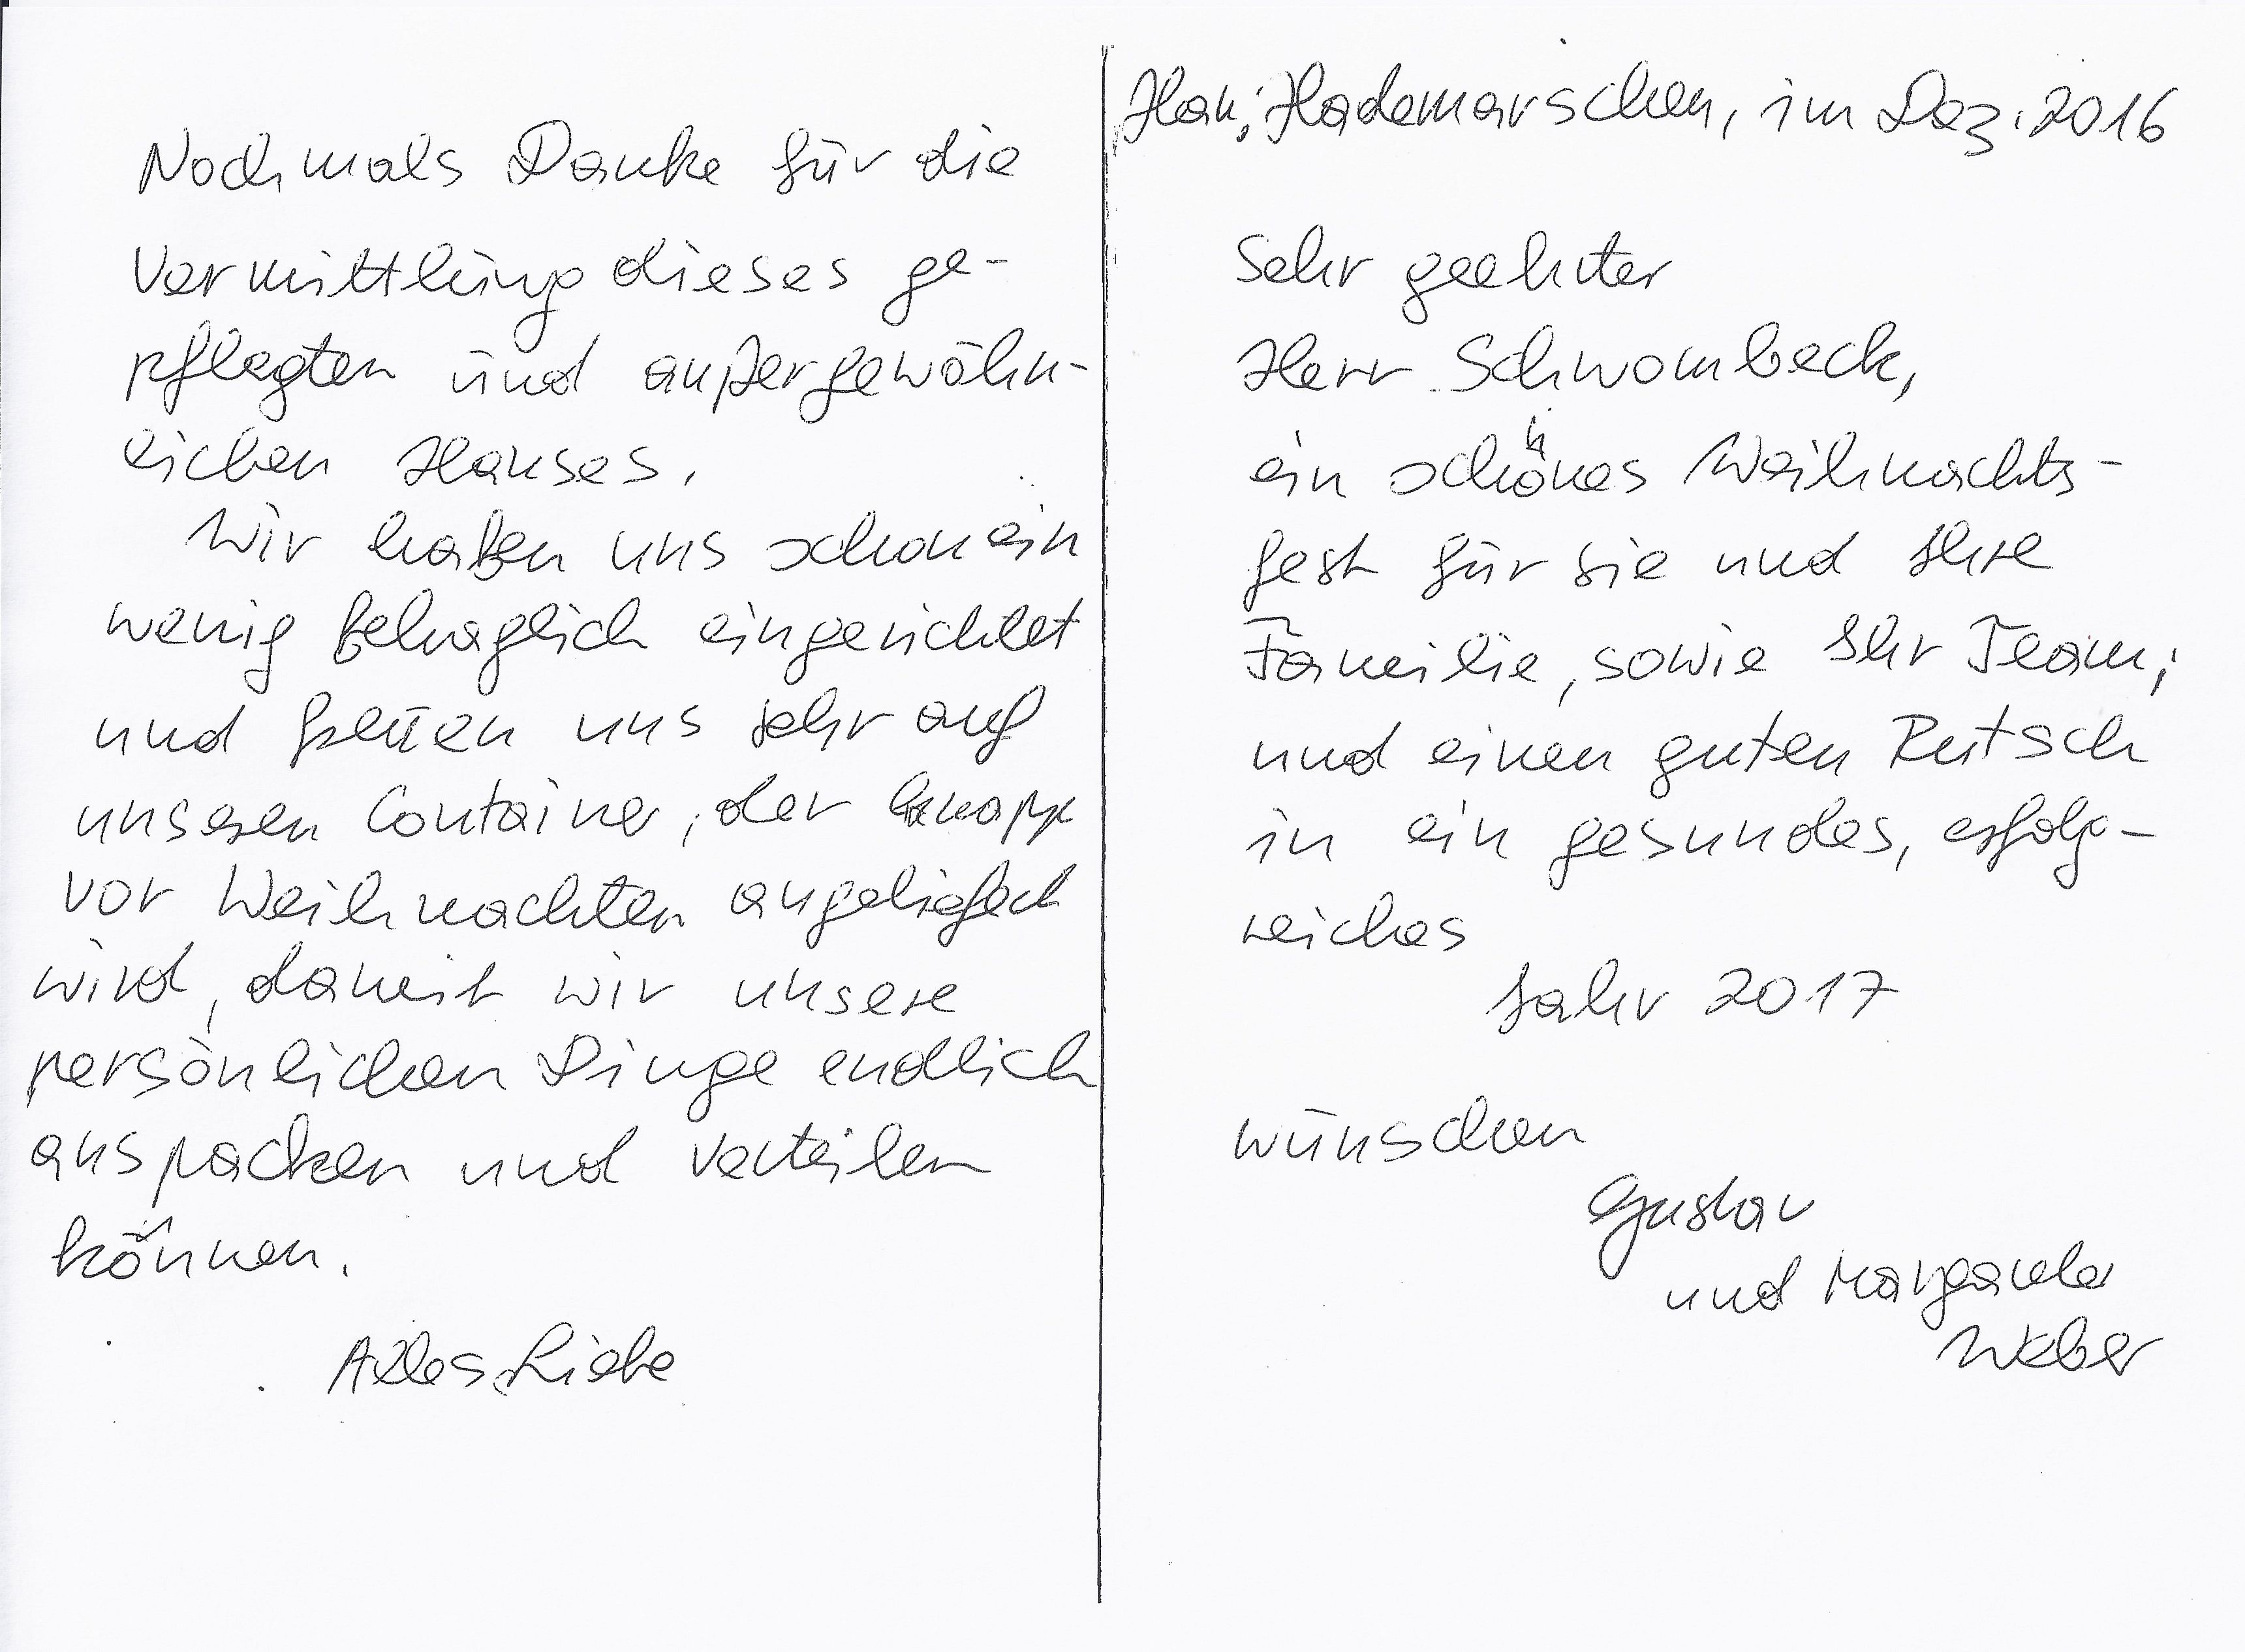 Nochmals Danke für die
Vermittlung dieses ge-
pflegten und außergewöhn-
lichen Hauses.
Wir haben uns schon ein
wenig behaglich eingerichtet
und freuen uns sehr auf
unseren Container, der knapp
vor Weihnachten angeliefert
wird, damit wir unsere
persönlichen Dinge endlich
auspacken und verteilen
können.
Alles Liebe
Han; Hademarschen, im Dez. 2016
Sehr geehrter
Herr Schwombeck,
ein schönes Weihnachts-
fest für Sie und Ihre
Familie, sowie Ihr Team;
und einen guten Rutsch
in ein gesundes, erfolg-
reiches
Jahr 2017
wünschen
Gustav
und Margareta
Weber